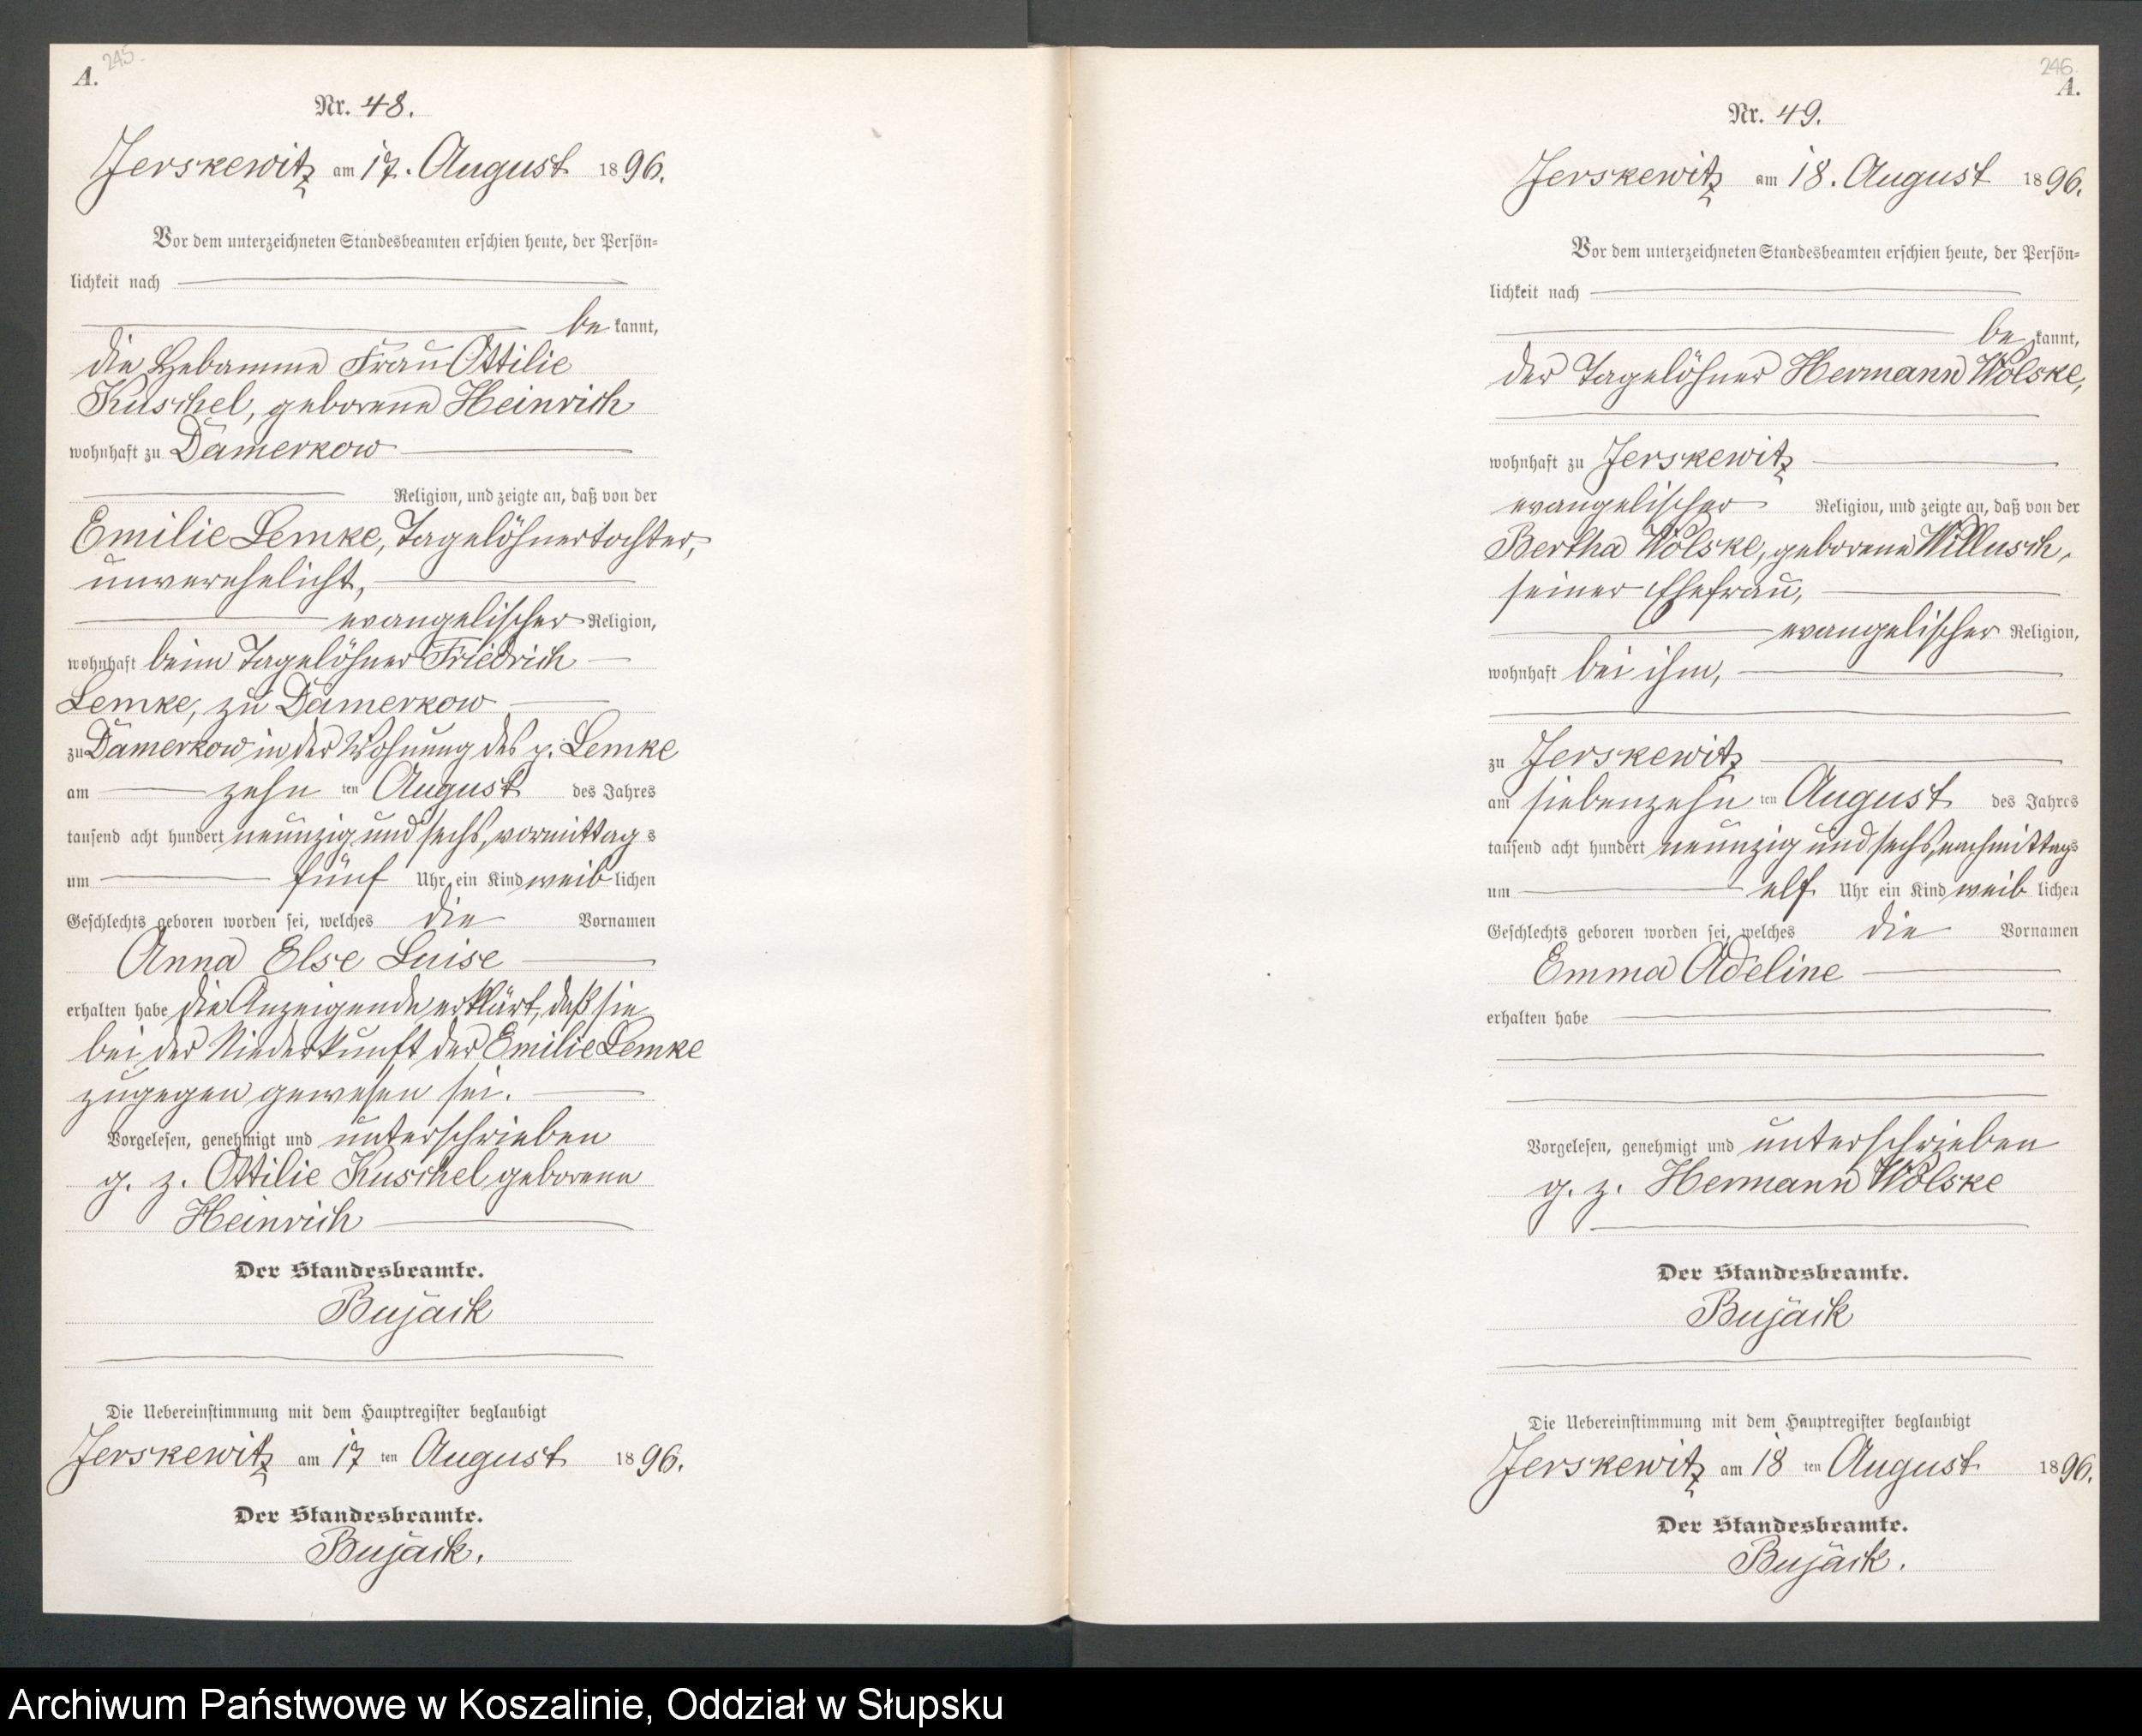 245.
A.
Nr. 48.
Jerskewitz am 17. August 1896.
Vor dem unterzeichneten Standesbeamten erschien heute, der Persön=
lichkeit nach
be kannt,
die Hebamme Frau Ottilie
Kuschel, geborene Heinrich
wohnhaft zu Damerkow
Religion, und zeigte an, daß von der
Emilie Lemke, Tagelöhnertochter,
unverehelicht,
evangelischer Religion,
wohnhaft beim Tagelöhner Friedrich
Lemke, zu Damerkow
zu Damerkow in der Wohnung des p. Lemke
am zehn ten August des Jahres
tausend acht hundert neunzig und sechs, vormittag s
um fünf Uhr ein Kind weib lichen
Geschlechts geboren worden sei, welches die Vornamen
Anna Else Luise
erhalten habe die Anzeigende erklärt, daß sie
bei der Niederkunft der Emilie Lemke
zugegen gewesen sei.
Vorgelesen, genehmigt und unterschrieben
g. z. Ottilie Kuschel geborene
Heinrich
Der Standesbeamte.
Bujack
Die Uebereinstimmung mit dem Hauptregister beglaubigt
Jerskewitz am 17 ten August 1896.
Der Standesbeamte.
Bujack.
246.
A.
Nr. 49.
Jerskewitz am 18. August 1896.
Vor dem unterzeichneten Standesbeamten erschien heute, der Persön=
lichkeit nach
be kannt,
der Tagelöhner Hermann Wolske,
wohnhaft zu Jerskewitz
evangelischer Religion, und zeigte an, daß von der
Bertha Wolske, geborene Willusch,
seiner Ehefrau,
evangelischer Religion,
wohnhaft bei ihm,
zu Jerskewitz
am siebenzehn ten August des Jahres
tausend acht hundert neunzig und sechs, nachmittags
um elf Uhr ein Kind weib lichen
Geschlechts geboren worden sei, welches die Vornamen
Emma Adeline
erhalten habe
Vorgelesen, genehmigt und unterschrieben
g. z. Hermann Wolske
Der Standesbeamte.
Bujack
Die Uebereinstimmung mit dem Hauptregister beglaubigt
Jerskewitz am 18 ten August 1896.
Der Standesbeamte.
Bujack.
Archiwum Państwowe w Koszalinie, Oddział w Słupsku